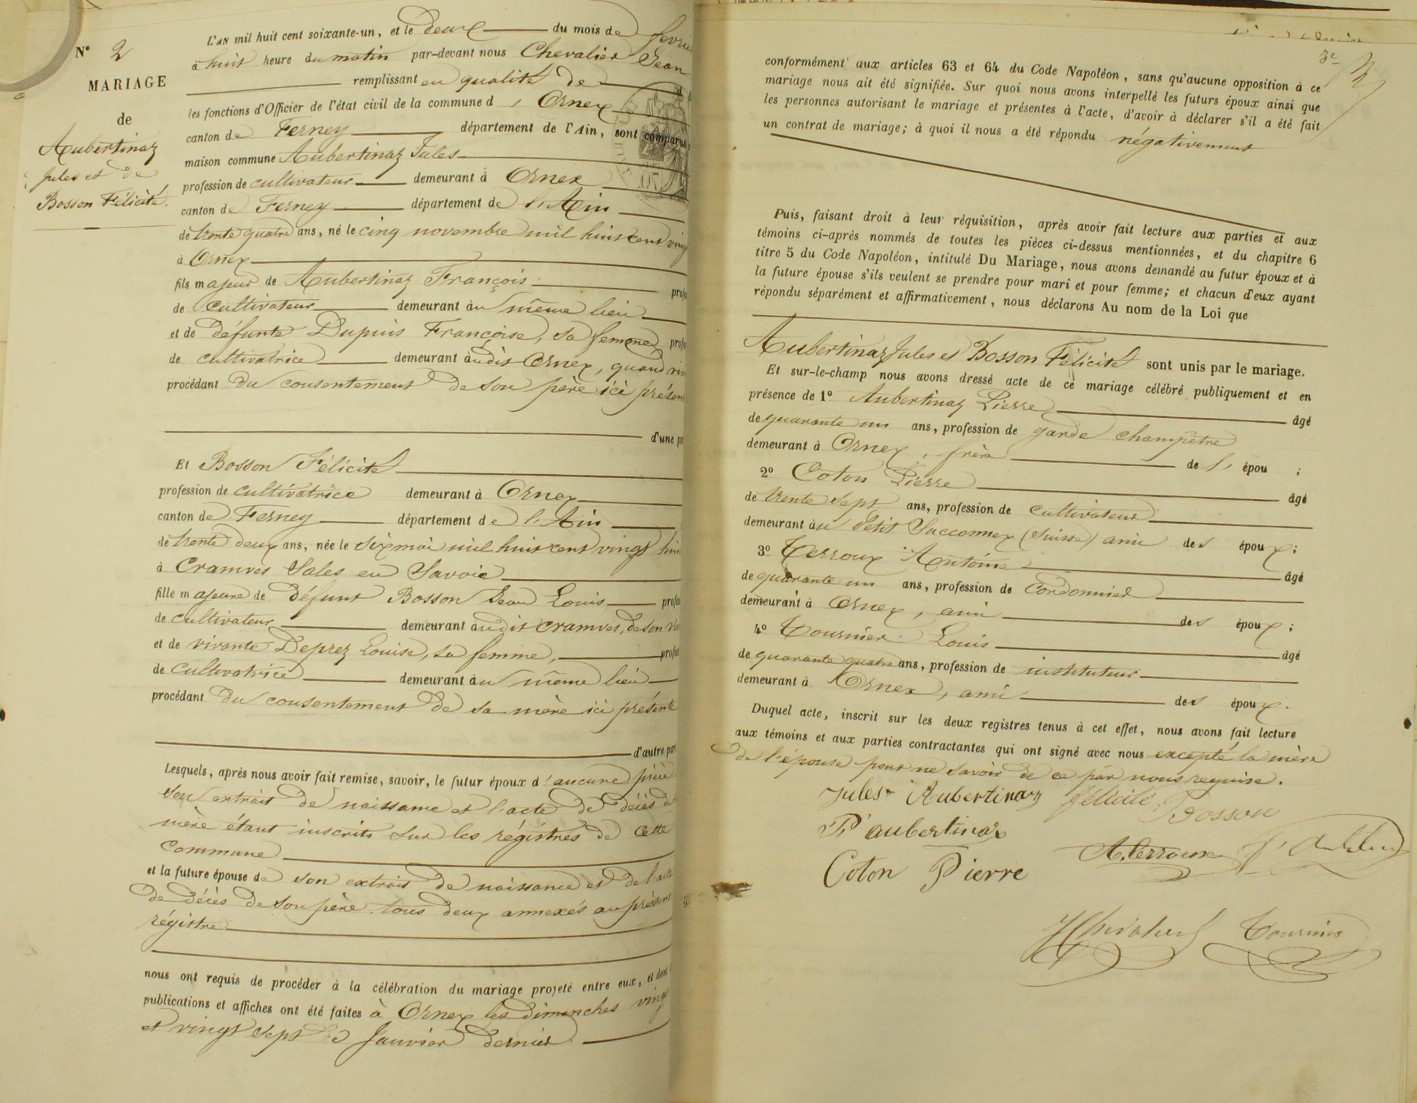 N° 2
MARIAGE
de
Aubertinaz
Jules et de
Bosson Félicité.
L'AN mil huit cent soixante-un, et le deux du mois de févri
à huit heure du matin par-devant nous Chevalier Jean
remplissant en qualité de
les fonctions d'Officier de l'état civil de la commune d' Ornex
canton de Ferney département de l'Ain, sont comparus
maison commune Aubertinaz Jules
profession de cultivateur demeurant à Ornex
canton de Ferney département de l'Ain
de trente quatre ans, né le cinq novembre mil huit cent ving
à Ornex
fils majeur de Aubertinaz François profe
de cultivateur demeurant au même lieu
et de défunte Dupuis Françoise, sa femme, profe
de cultivatrice demeurant audit Ornex, quand viv
procédant du consentement de son père ici présen
d'une pa
Et Bosson Félicité
profession de cultivatrice demeurant à Ornex
canton de Ferney département de l'Ain
de trente deux ans, née le six mai mil huit cent vingt hui
à Cramves Sales en Savoie
fille majeure de défunt Bosson Jean Louis profes
de cultivateur demeurant audit Cramves, de son viv
et de vivante Deprez Louise, sa femme, profes
de cultivatrice demeurant au même lieu
procédant du consentement de sa mère ici présente
d'autre part
Lesquels, après nous avoir fait remise, savoir, le futur époux d'aucune pièce
son extrait de naissance et l'acte de décès de
mère étant inscrits sur les régistres de cette
commune
et la future épouse de son extrait de naissance et de l'acte
de décès de son père tous deux annexés au présent
régistre
nous ont requis de procéder à la célébration du mariage projeté entre eux, et dont
publications et affiches ont été faites à Ornex les dimanches vingt
et vingt sept Janvier dernier
3e
conformément aux articles 63 et 64 du Code Napoléon, sans qu'aucune opposition à ce
mariage nous ait été signifiée. Sur quoi nous avons interpellé les futurs époux ainsi que
les personnes autorisant le mariage et présentes à l'acte, d'avoir à déclarer s'il a été fait
un contrat de mariage; à quoi il nous a été répondu négativement
Puis, faisant droit à leur réquisition, après avoir fait lecture aux parties et aux
témoins ci-après nommés de toutes les pièces ci-dessus mentionnées, et du chapitre 6
titre 5 du Code Napoléon, intitulé Du Mariage, nous avons demandé au futur époux et à
la future épouse s'ils veulent se prendre pour mari et pour femme; et chacun d'eux ayant
répondu séparément et affirmativement, nous déclarons Au nom de la Loi que
Aubertinaz Jules et Bosson Félicité sont unis par le mariage.
Et sur-le-champ nous avons dressé acte de ce mariage célébré publiquement et en
présence de 1° Aubertinaz Pierre âgé
de quarante un ans, profession de garde champêtre
demeurant à Ornex, frère de l' épou ;
2° Coton Pierre âgé
de trente sept ans, profession de cultivateur
demeurant au Petit Saccomex (Suisse) ami des époux;
3° Terroux Antoine âgé
de quarante un ans, profession de Cordonnier
demeurant à Ornex, ami des époux;
4° Tournier Louis âgé
de quarante quatre ans, profession de instituteur
demeurant à Ornex, ami des époux.
Duquel acte, inscrit sur les deux registres tenus à cet effet, nous avons fait lecture
aux témoins et aux parties contractantes qui ont signé avec nous excepté la mère
de l'épouse pour ne savoir de ce par nous requise.
Jules Aubertinaz Félicité Bosson
P. aubertinaz
A. terroux
Coton Pierre
Chevalier Tournier